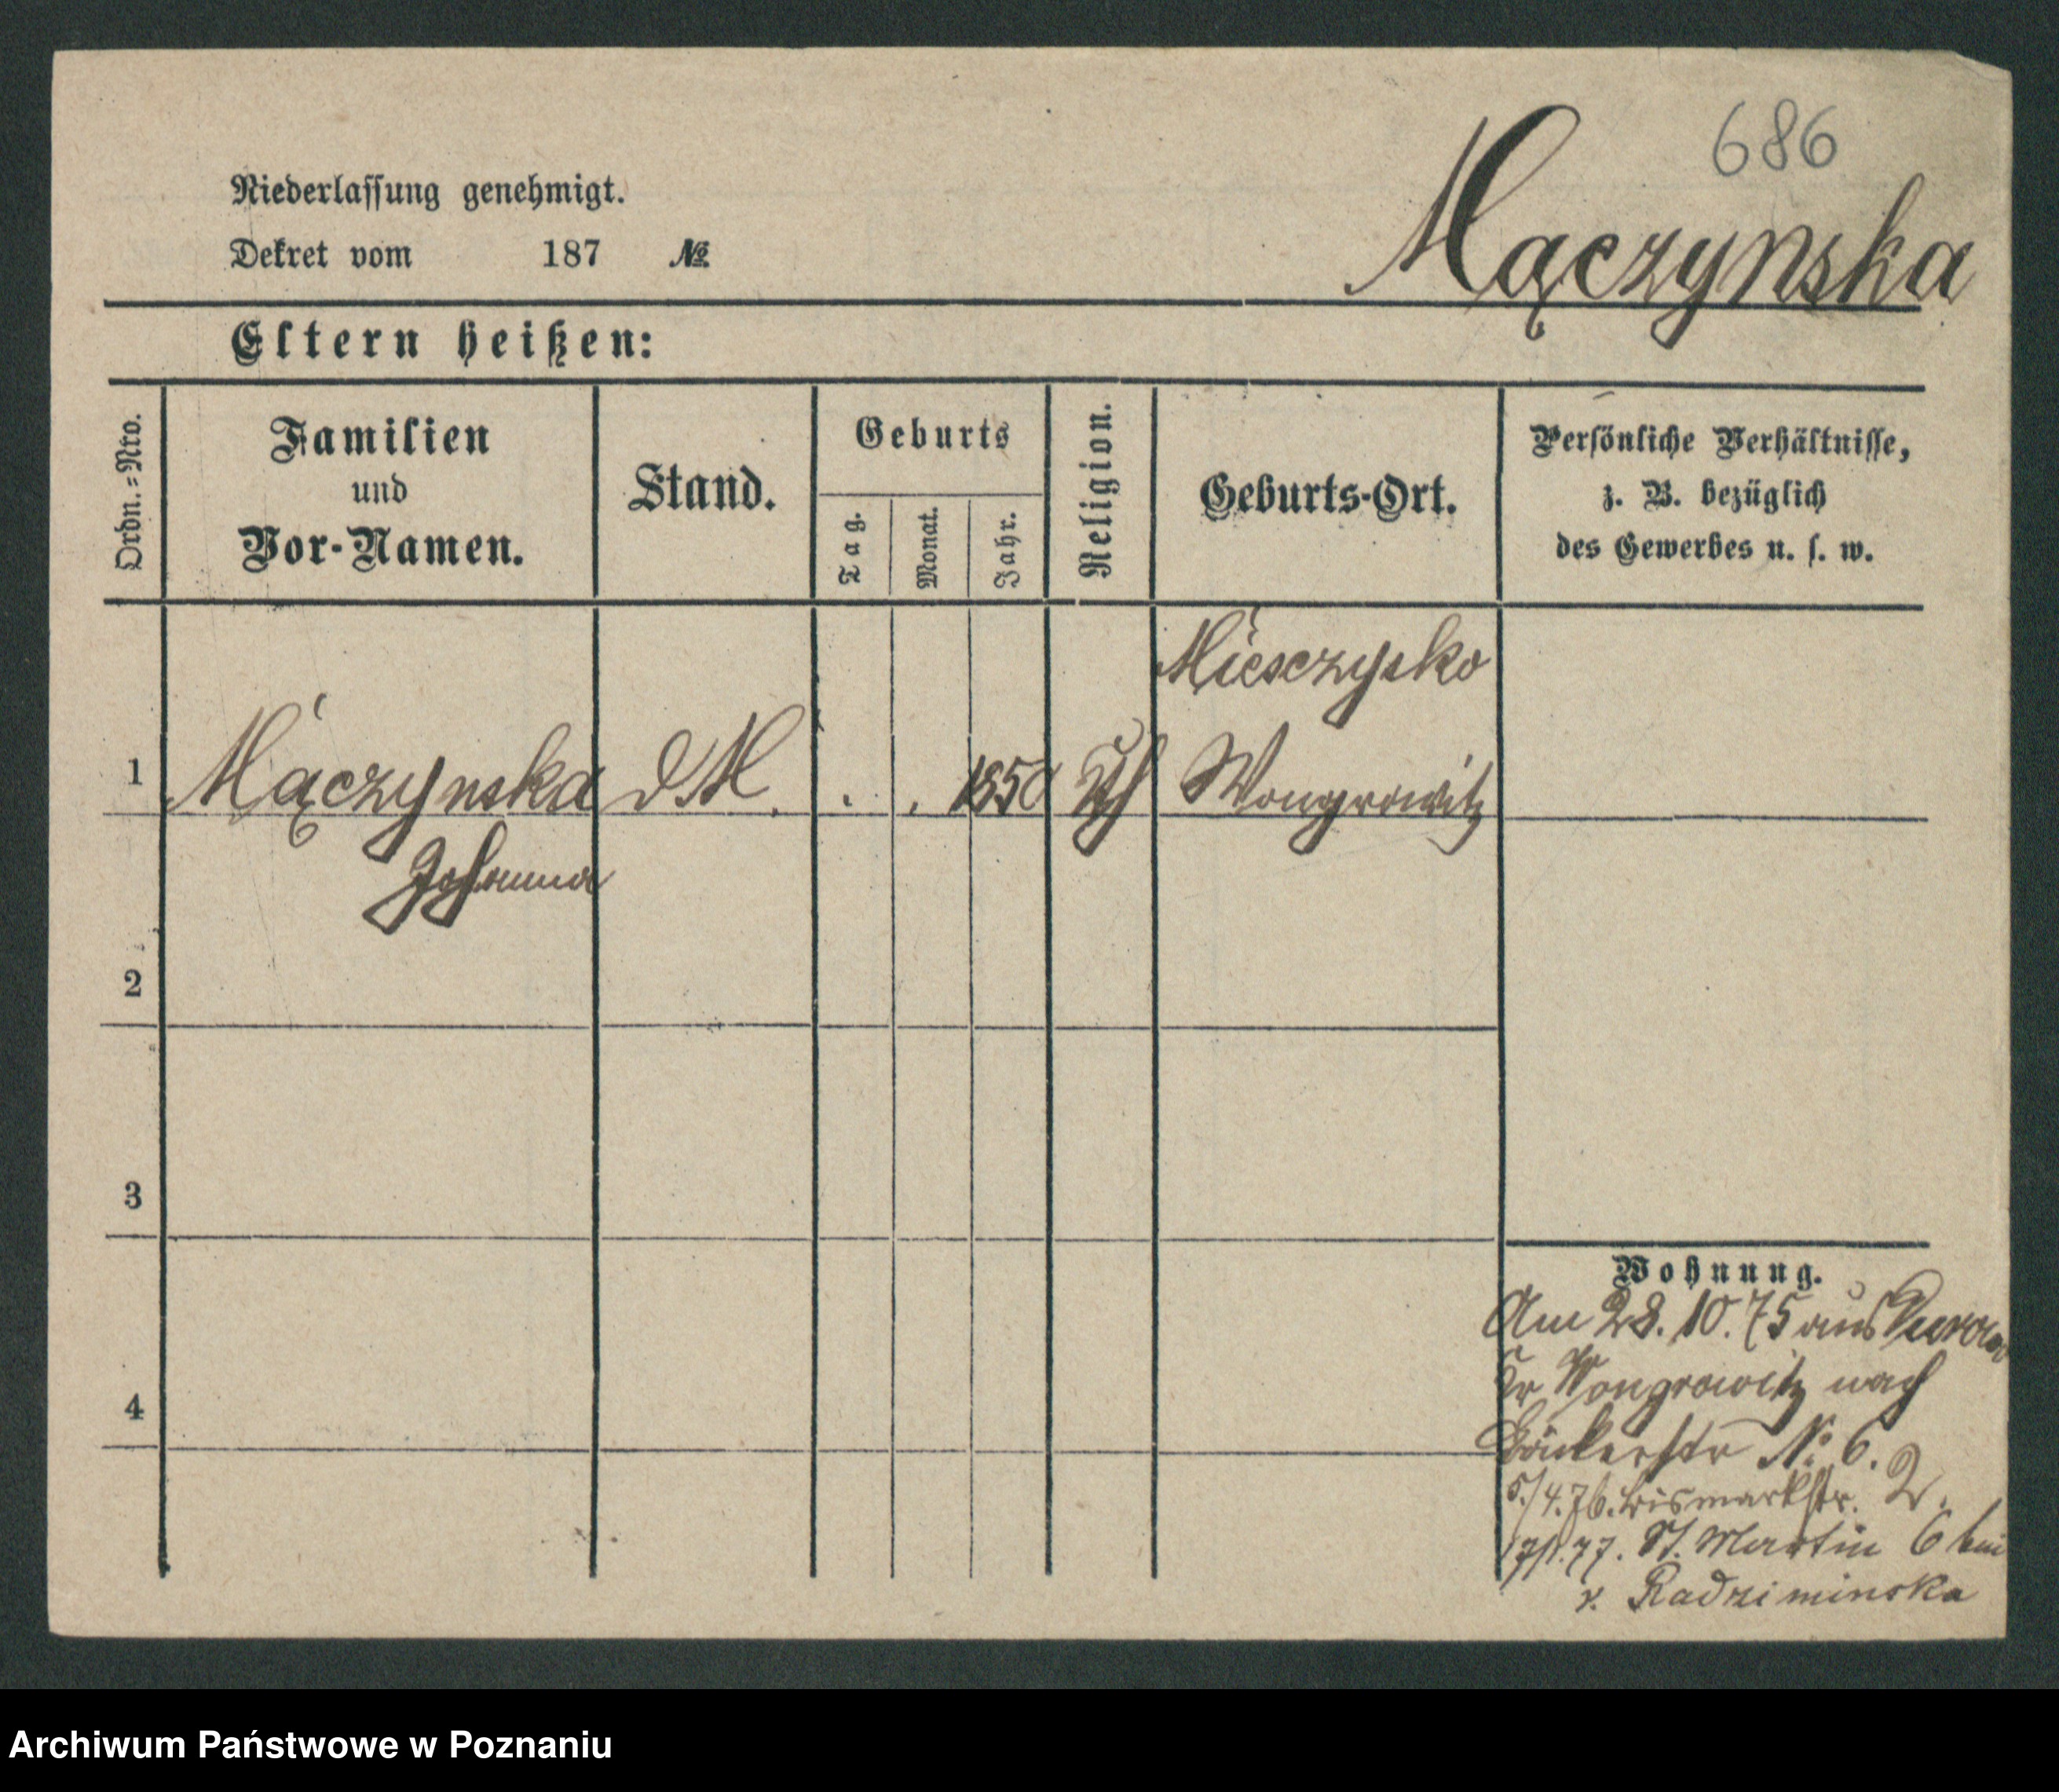 686
Niederlassung genehmigt.
Dekret vom 187 №
Mączynska
Eltern heißen:
Ordn.=Nro.
Familien
und
Vor-Namen.
Stand.
Geburts
Tag.
Monat.
Jahr.
Religion.
Geburts-Ort.
Persönliche Verhältnisse,
z. B. bezüglich
des Gewerbes u. s. w.
Miesczysko
1 Mączynska d M. . . 1850 Wongrowitz
Johanna
2
3
4
Wohnung.
Am 28. 10. 75 aus
Kr Wongrowitz nach
Bäckerstr No 6.
5./4.76. Bismarkstr. 2.
77. St. Martin 6 bei
v. Radziminska
Archiwum Państwowe w Poznaniu